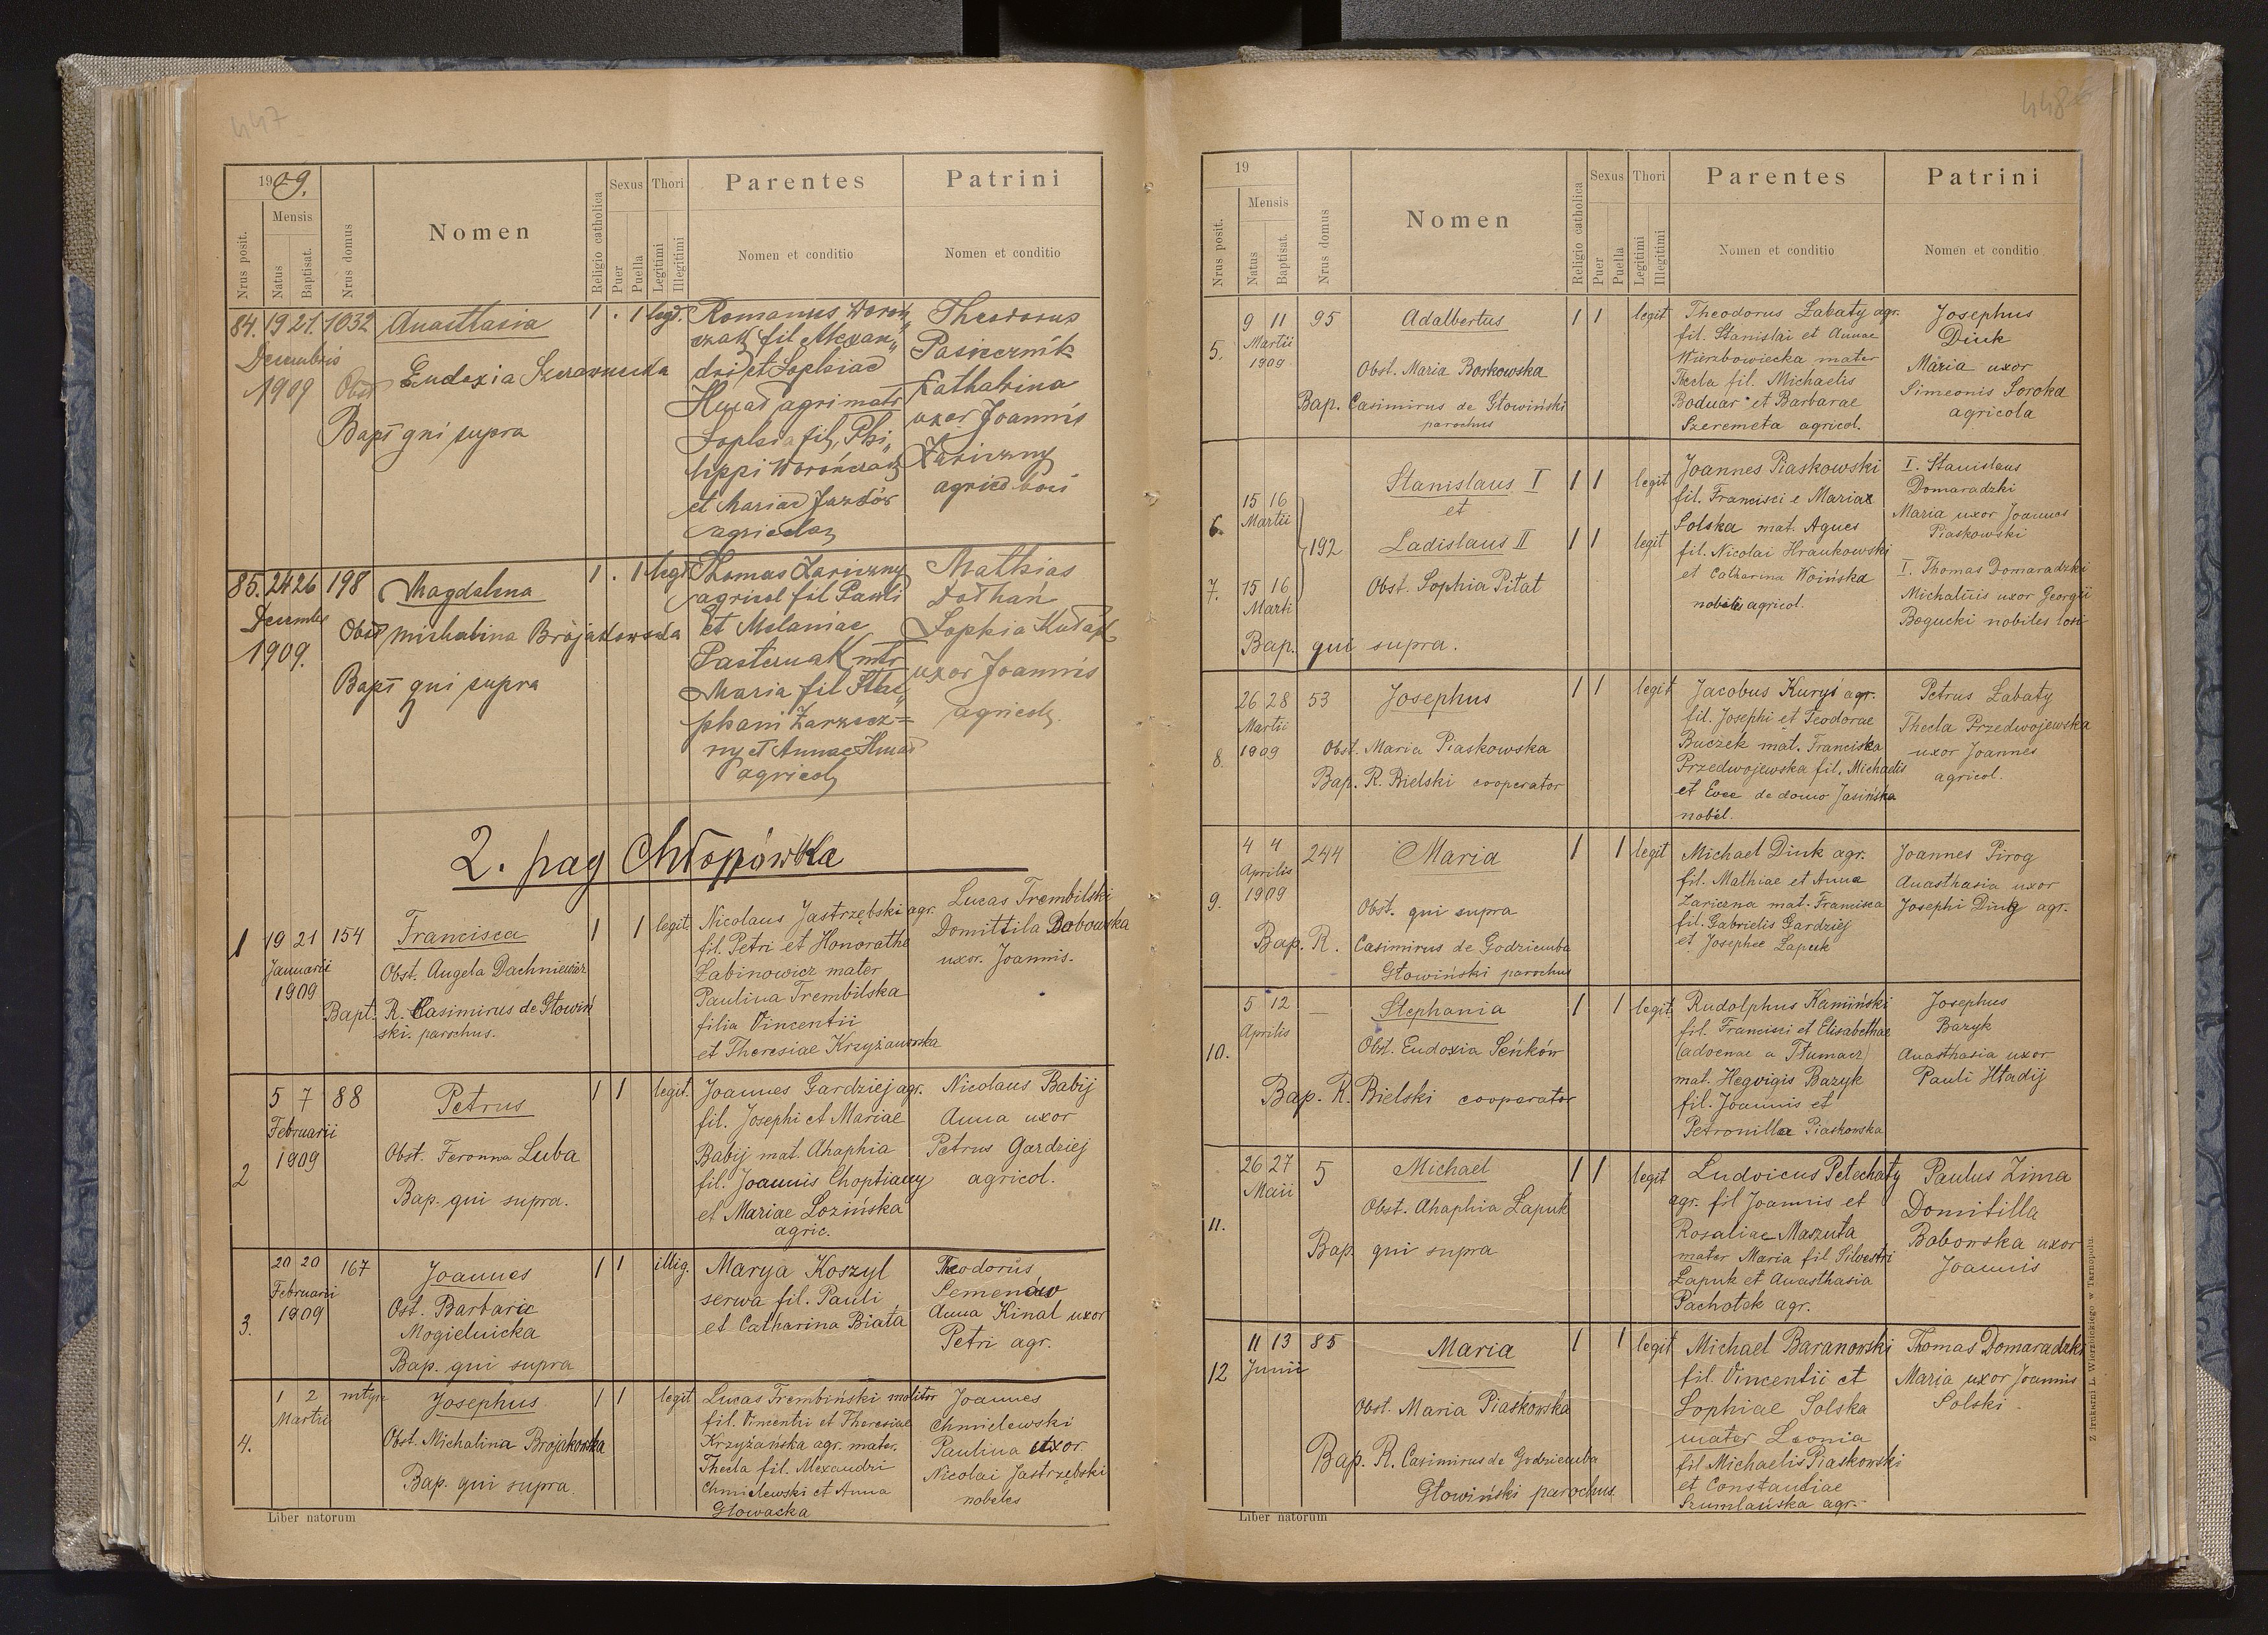 447
1909.
Nrus posit.
Mensis
Natus
Baptisat.
Nrus domus
Nomen
Religio catholica
Sexus
Puer
Puella
Thori
Legitimi
Illegitimi
Parentes
Nomen et conditio
Patrini
Nomen et conditio
84. 19 21. 1032 Anasttasia 1 . 1 legt.
Decembris
1909 Obst Eudoxia
Bapt qui supra
Romanus Woroń„
czak fil Alexan„
dri et Sophiae
Hucał agri matr
Sophia fil, Phi„
lippi Worończak
et Mariae Jazdów
agricolar
Theodorus
Pasiecznik
Catharina
uxor Joannis
Zariczny
agricol
85. 24 26 198 Magdalena 1 . 1 legt
Decembr
1909. Obst Michalina Brojakowska
Bapt qui supra
Thomas Zariczny
agricol fil Pauli
et Melaniae
Pasternak mtr
Maria fil Ste„
phani
ny et Annae
agricol
Mathias
Dołhań
Sophia
uxor Joannis
agricol.
2. pag Chłopówka
1 19 21 154 Francisca 1 1 legit
Januarii
1909
Obst. Angela Dachniewicz
Bapt. R. Casimirus de Głowiń
ski. parochus.
Nicolaus Jastrzębski agr.
fil. Petri et Honorathe
Łabinowicz mater
Paulina Trembilska
filia Vincentii
et Theresiae Krzyżanowska
Lucas Trembilski
Domittila Bobowska
uxor. Joannis.
2 5 7 88 Petrus 1 1 legit.
Februarii
1909
Obst. Feronna Luba
Bap. qui supra.
Joannes Gardziej agr.
fil. Josephi et Mariae
Babij mat. Ahaphia
fil. Joannis Choptiany
et Mariae Lozińska
agric.
Nicolaus Babij
Anna uxor
Petrus Gardziej
agricol.
3. 20 20 167 Joannes 1 1 illig.
Februarii
1909
Ost. Barbara
Mogielnicka
Bap. qui supra
Marya Koszyl
serwa fil. Pauli
et Catharina Biała
Theodorus
Semenów
Anna Kinal uxor
Petri agr.
4. 1 2 młyn Josephus 1 1 legit
Martii
Obst. Michalina Brojakowska
Bap. qui supra.
Lucas Trembiński molitor
fil. Vincentii et Theresiae
Krzyżańska agr. mater.
Thecla fil. Alexandri
Chmielewski et Anna
Głowacka
Joannes
Chmielewski
Paulina uxor.
Nicolai Jastrzębski
nobeles
Liber natorum
448
19
Nrus posit.
Mensis
Natus
Baptisat.
Nrus domus
Nomen
Religio catholica
Sexus
Puer
Puella
Thori
Legitimi
Illegitimi
Parentes
Nomen et conditio
Patrini
Nomen et conditio
5. 9 11 95 Adalbertus 1 1 legit
Martii
1909
Obst. Maria Borkowska
Bap. Casimirus de Głowiński
parochus
Theodorus Łabaty agr.
fil. Stanislai et Annae
Wierzbowiecka mater
Thecla fil. Michaelis
Boduar et Barbarae
Szeremeta agricol.
Josephus
Diuk
Maria uxor
Simeonis Soroka
agricola
6. 15 16 Stanislaus I 1 1 legit
Martii
et
192 Ladislaus II 1 1 legit
7. 15 16 Obst. Sophia Pitat
Marti
Bap. qui supra.
Joannes Piaskowski
fil. Francisci e Mariae
Solska mat. Agnes
fil. Nicolai Hraukowski
et Catharina Woińska
nobeli agricol.
I. Stanislaus
Domaradzki
Maria uxor Joannes
Piaskowski
I. Thomas Domaradzki
uxor Georgii
Bogucki nobiles
8. 26 28 53 Josephus 1 1 legit
Martii
1909
Obst. Maria Piaskowska
Bap. R. Bielski cooperator
Jacobus Kuryś agr.
fil. Josephi et Teodorae
Buczek mat. Franciska
Przedwojewska fil. Michaelis
et Evae de domo Jasińska
nobel.
Petrus Łabaty
Thecla Przedwojewska
uxor Joannes
agricol.
9. 4 4 244 Maria 1 1 legit
Aprilis
1909
Obst. qui supra
Bap. R. Casimirus de Godziemba
Głowiński parochus
Michael Diuk agr.
fil. Mathiae et Anna
Zariczna mat. Francisca
fil. Gabrielis Gardziej
et Josephee Łapuk
Joannes Pirog
Anasthasia uxor
Josephi Diug agr.
10. 5 12 — Stephania 1 1 legit
Aprilis
Obst. Eudoxia Seńków
Bap. R. Bielski cooperator
Rudolphus Kamiński
fil. Francisci et Elisabethae
(advenae a Tłumacz)
mat. Hegvigis Bazyk
fil. Joannis et
Petronilla Piaskowska
Josephus
Bazyk
Anasthasia uxor
Pauli Hładij
11. 26 27 5 Michael 1 1 legit
Maii
Obst. Ahaphia Łapuk
Bap. qui supra
Ludvicus Petechaty
agr. fil Joannis et
Rosaliae Maszuta
mater Maria fil Silvestri
Łapuk et Anasthasia
Pachotek agr.
Paulus Zima
Domitilla
Bobowska uxor
Joannis
12 11 13 85 Maria 1 1 legit
Junii
Obst. Maria Piaskowska
Bap. R. Casimirus de Godziemba
Głowiński parochus.
Michael Baranowski
fil. Vincentii et
Sophiae Solska
mater Leonia
fil Michaelis Piaskowski
et Constanciae
Szumlańska agr.
Thomas Domaradzki
Maria uxor Joannis
Solski.
Liber natorum
Z drukarni L. Wierzbickiego w Tarnopolu.